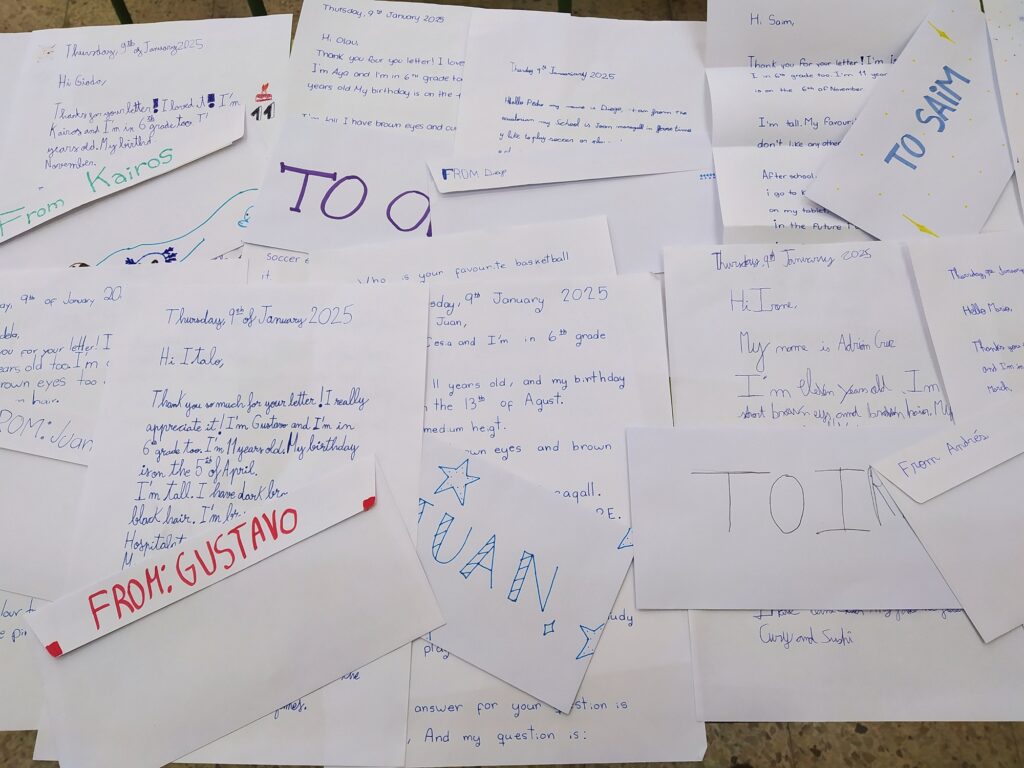 Thursday, 9th of January 2025
Hi Giada,
Thanks for your letter! I loved it! I'm
Kairos and I'm in 6th grade too. I'
years old. My birthd
November.
11
From Kairos
Thursday, 9th January 2025
Hi Olau,
Thank you four you letter! I love
I'm Aya and I'm in 6th grade to
years old My birthday is on the
I'm tall I have brown eyes and
TO O
Thursday 9th Januarary 2025
Hello Pedro my name is Diego, i am from The
my School is Joan maragall in free time
y like to play soccer
FROM Diego
Hi, Saim,
Thank you for your letter! I'm
I in 6th grade too. I'm 11 year
is on the 6th of November
I'm tall. My favouri
don't like any other
After school,
i go to K
on my tablet,
in the future I
TO SAIM
soccer
it
Who is your favourite basketball
ay, 9th of January 20
you for your letter! I
ears old too. I'm
rown eyes too
n hair.
ROM: Juan
Thursday, 9th of January 2025
Hi Italo,
Thank you so much for your letter! I really
appreciate it! I'm Gustavo and I'm in
6th grade too. I'm 11 years old. My birthday
is on the 5th of April.
I'm tall. I have dark br
black hair. I'm
Hospitalet
M
FROM: GUSTAVO
sday, 9th January 2025
Juan,
Cesia and I'm in 6th grade
11 years old, and my birthday
the 13th of Agust.
medium heigt.
wn eyes and brown
agall.
PE.
JUAN
udy
play
answer for your question is
, And my question is:
Thursday, 9th Janurary 2025
Hi Irene,
My name is Adrián Cruz
I'm eleben years old. I'm
short brown eyes and brown hair. My
TO IR
Curry and Sushi
Thursday, 9th January
Hello Mario,
Thanks you
and I'm in
March.
From Andrés